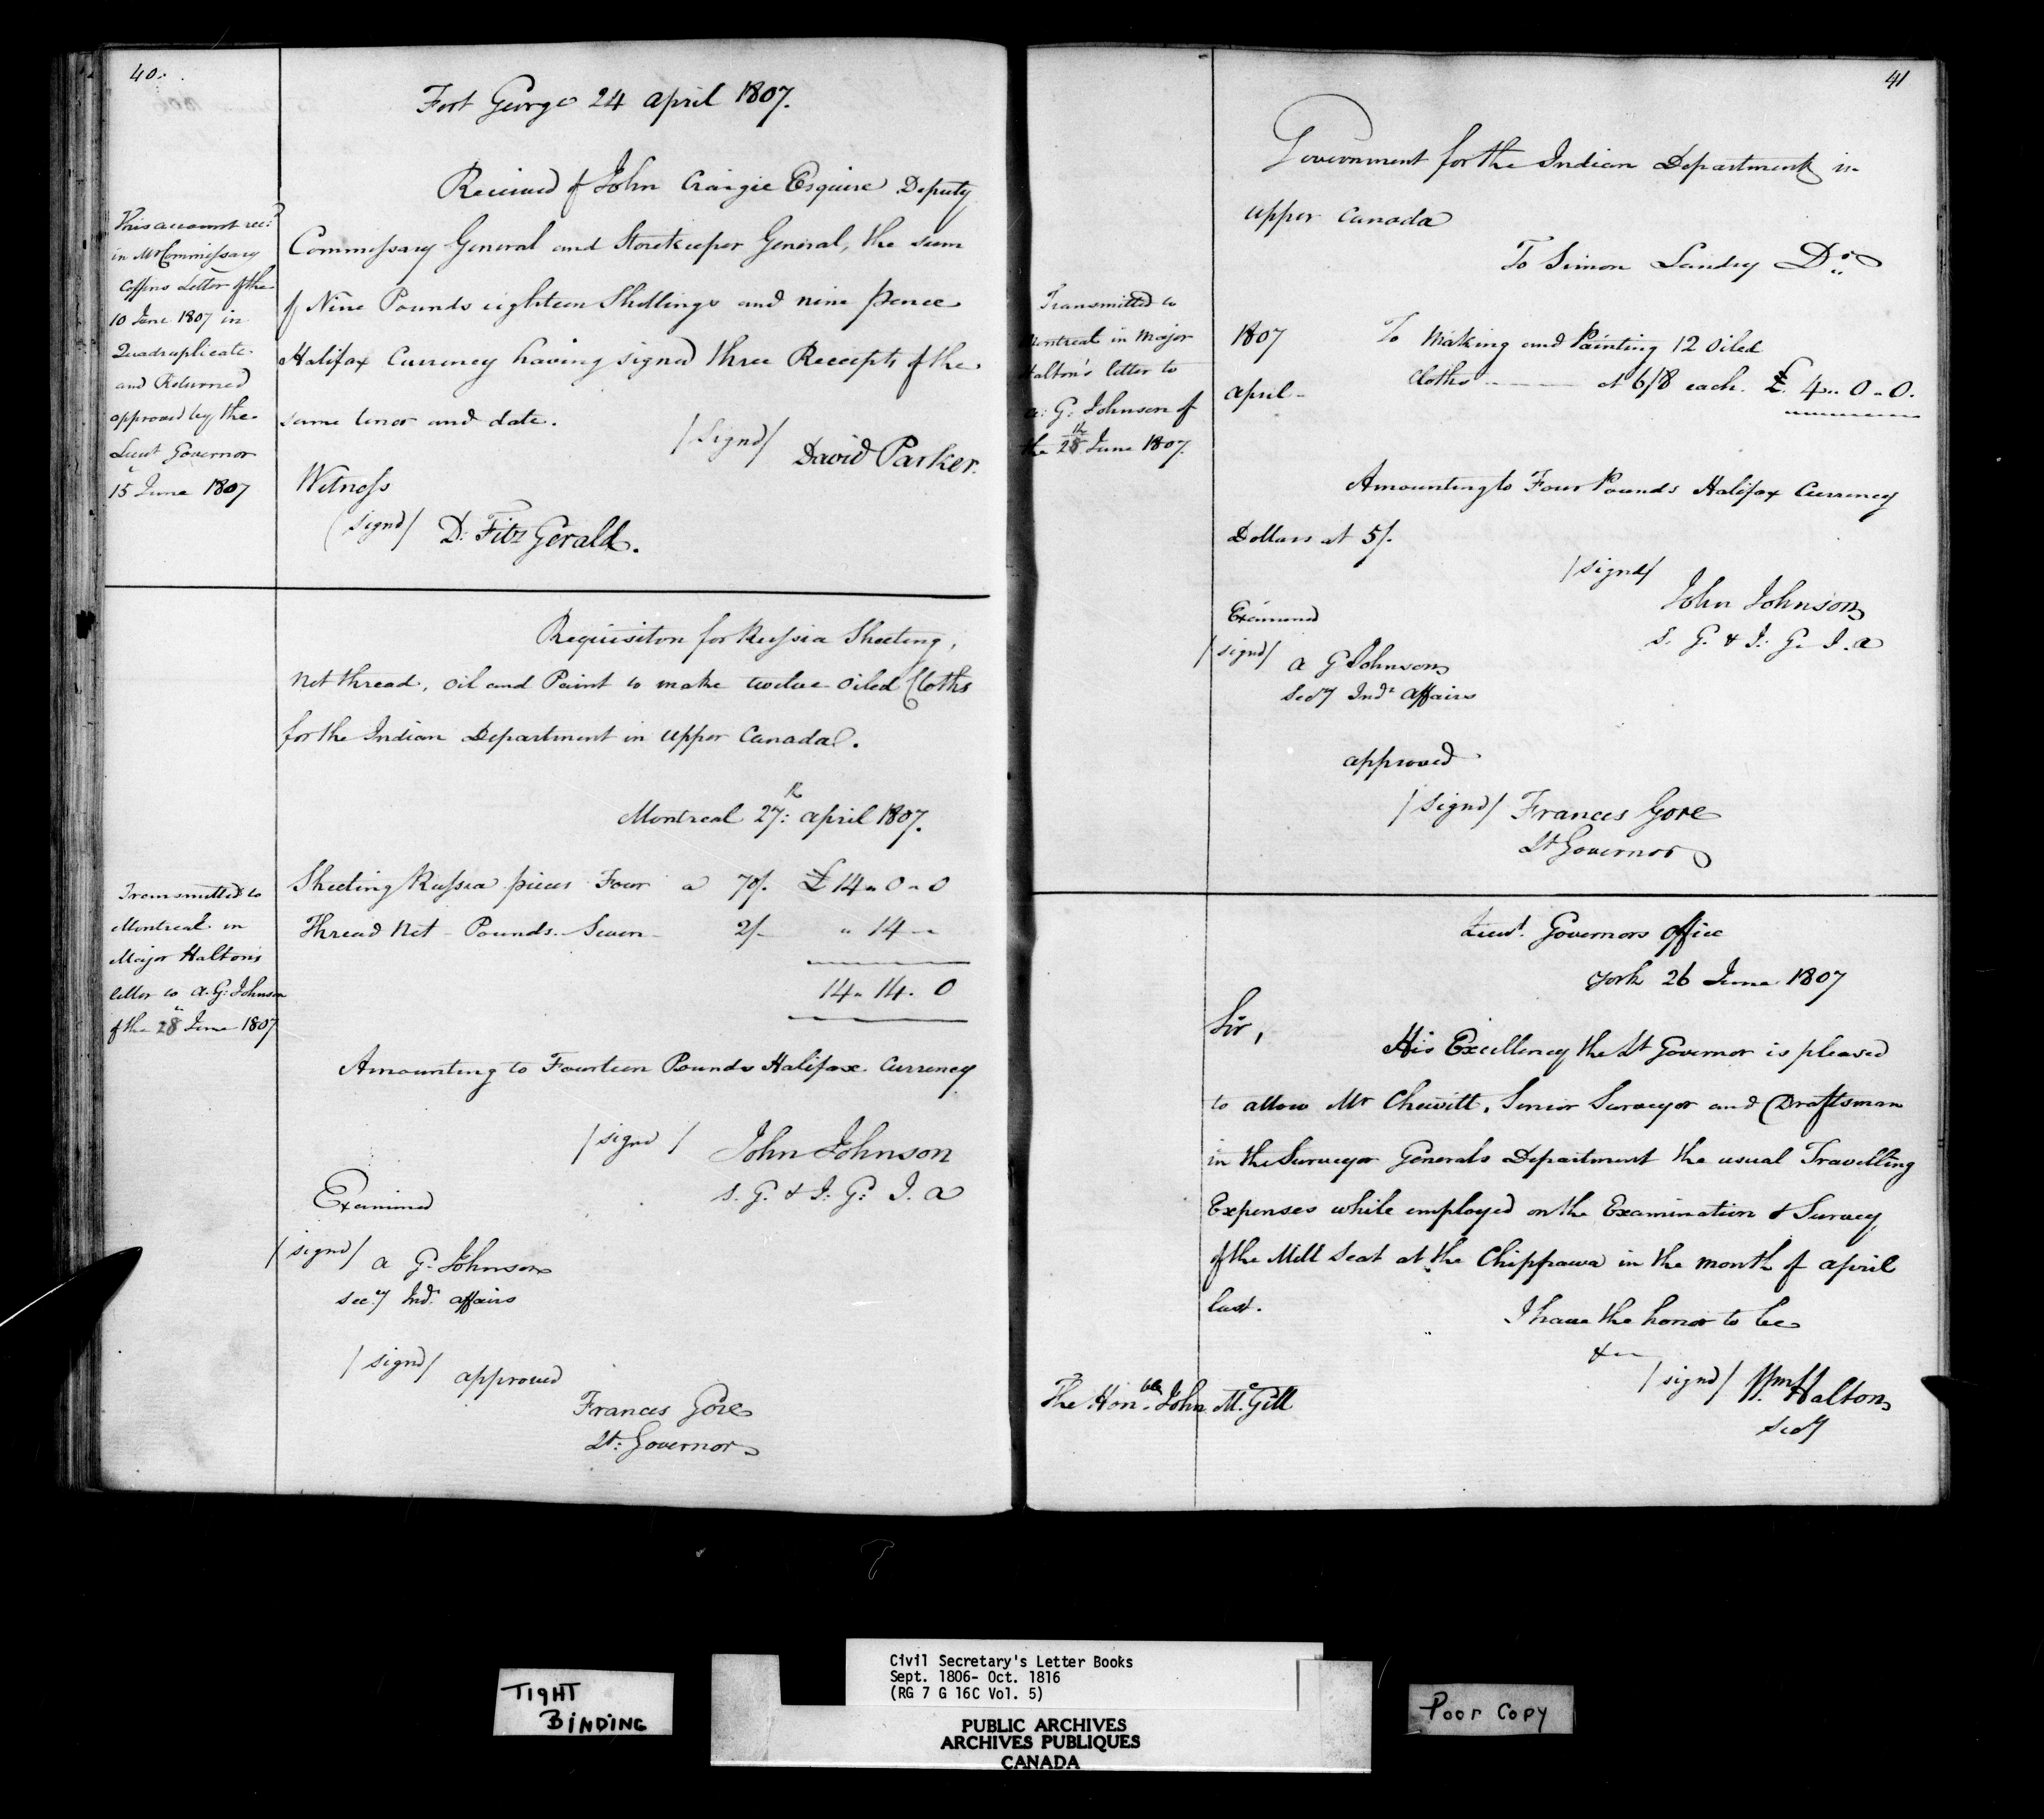 40.
Fort George 24 april 1807.
Received of John Craigie Esquire Deputy
Commissary General and Storekeeper General, the sum
of Nine Pounds eighteen Shillings and nine pence
Halifax Currency having signed three Receipts of the
same tenor and date.
/Signd/ David Parker.
Witness
/signd/ D. Fitz Gerald.
This account recd
in Mr Commissary
Coffins Letter of the
10 June 1807 in
Quadruplicate
and Returned
approved by the
Lieut Governor
15 June 1807
Requisiton for Russia Sheeting,
net thread, oil and Paint to make twelve oiled Cloths
for the Indian Department in upper Canada.
Montreal 27th april 1807.
Sheeting Russia pieces Four a 70/. £14 " 0 " 0
Thread Net - Pounds - Seven - 2/- " 14 -
14 " 14 " 0
Transmitted to
Montreal in
Major Halton's
letter to A. G. Johnson
of the 28 June 1807
Amounting to Fourteen Pounds Halifax Currency
/signd/ John Johnson
S. G. & I: G: I. A
Examined
/signd/ A G. Johnson
Secy Indn affairs
/signd/ approved
Frances Gore
Lt: Governor
41
Government for the Indian Department in
upper Canada
To Simon Landry Dr
1807 To Making and Painting 12 oiled
april - Cloths - at 6/8 each. £ 4 " 0 " 0.
Transmitted to
Montreal in Major
Halton's letter to
A. G. Johnson of
the 28th June 1807.
Amounting to Four Pounds Halifax Currency
Dollars at 5/.
/signd/
John Johnson
S. G. & I: G. I. A
Examined
/signd/ A G Johnson
Secy Indn affairs
approved
/signd/ Frances Gore
Lt Governor
Lieut. Governors office
York 26 June 1807
Sir,
His Excellency the Lt Governor is pleased
to allow Mr Chewitt, Senior Surveyor and Draftsman
in the Surveyor Generals Department the usual Travelling
Expenses while employed on the Examination & Survey
of the Mill Seat at the Chippawa in the month of april
last.
I have the honor to be
&c
/signd/ Wm Halton
Secy
The Honble John McGill
TIGHT
BINDING
Civil Secretary's Letter Books
Sept. 1806- Oct. 1816
(RG 7 G 16C Vol. 5)
PUBLIC ARCHIVES
ARCHIVES PUBLIQUES
CANADA
Poor Copy